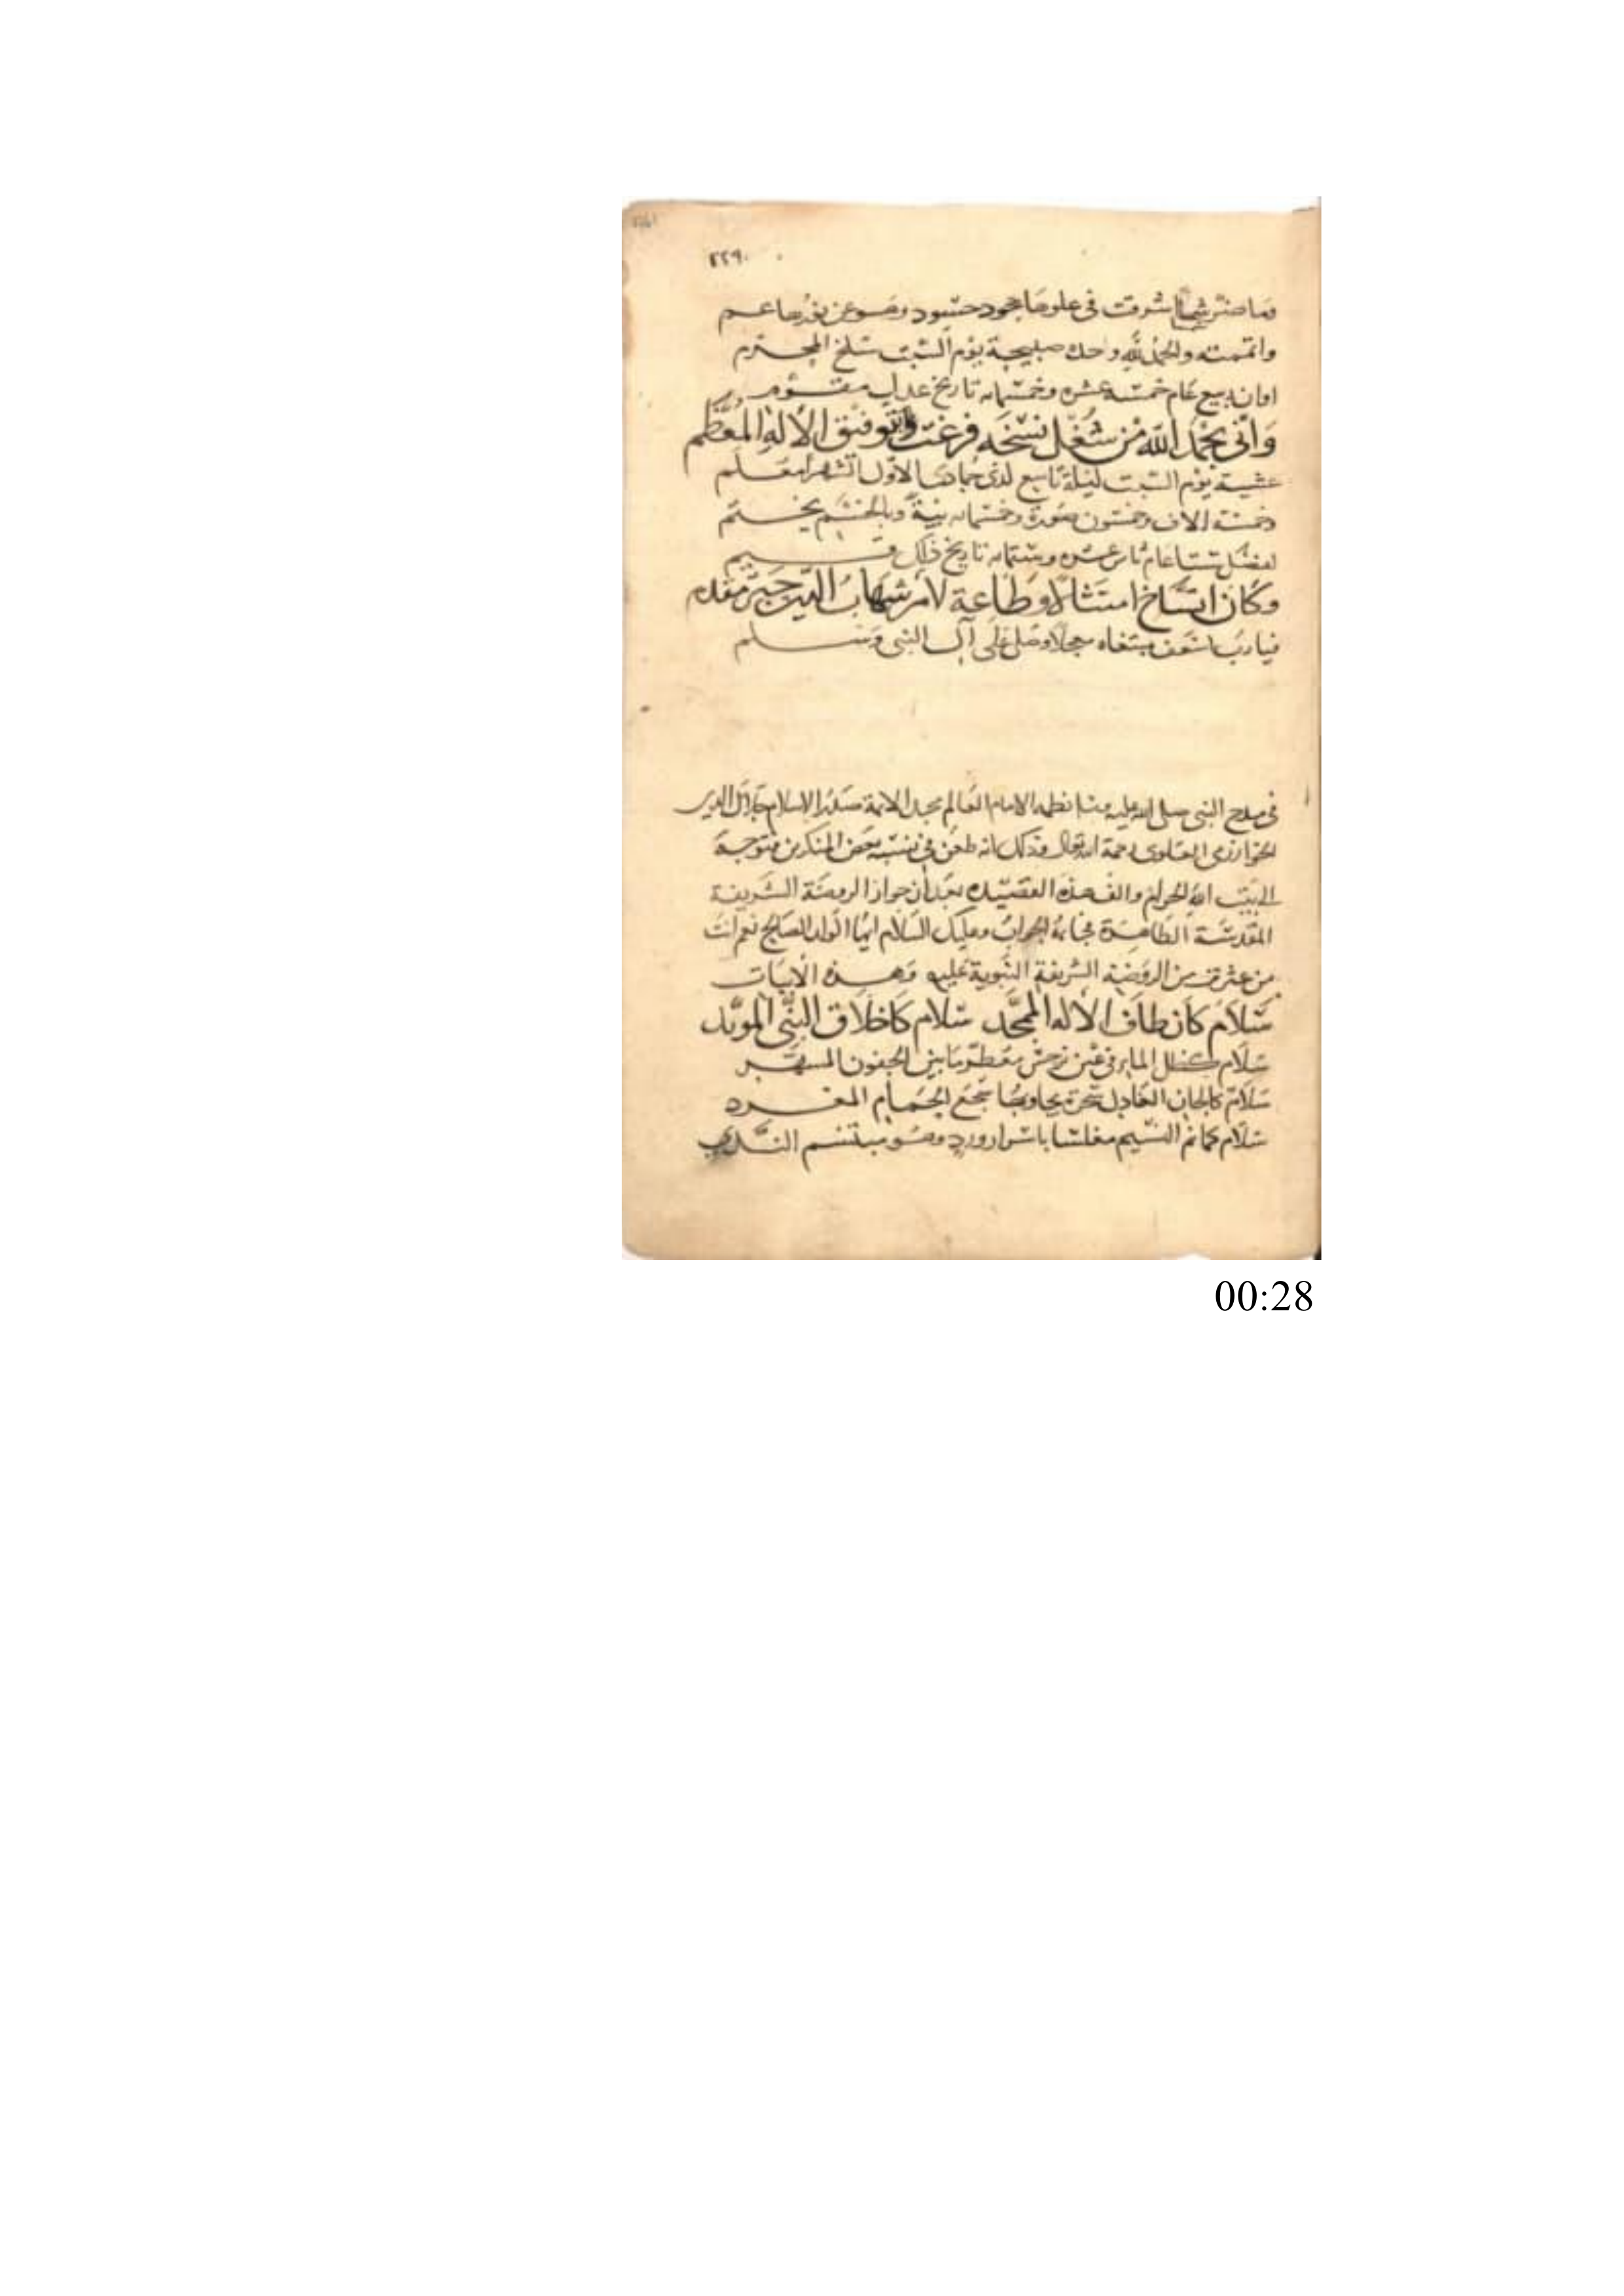 ٢٢٩
وما ضر شمسا اشرقت في علوها جحود حسود وهو عن نورها عم
واتممته والحمد لله وحده صبيحة يوم السبت سلخ المحرم
اوان ربيع عام خمسة عشرة وخمسمائه تاريخ عدل مقوم
واني بحمد الله من شغل نسخه فرغت وتوفيق الاله المعظم
عشية يوم السبت ليلة تاسع لدى جمادها الاول الشهر
وخمسة الاف وخمسون صورة وخمسمائه بيتة وبالختم يختم
عام ثامن عشره وستمائه تاريخ ذلك
وكان انتساخ امتثالا وطاعة لامر شهاب الدين حبر مقدم
فيا رب اسعف مبتغاه معجلا وصل على آل النبي وسلم
في مدح النبي صلى الله عليه مما نظمه الامام العالم مجد الائمة صدر الاسلام جلال الدين
الخوارزمي العلوي رحمة الله تعالى وذلك انه طعن في نسبه بعض المنكرين فتوجه
الى بيت الله الحرام والف هذه القصيده بعد ان جوار الروضة الشريفة
المقدسة الطاهرة فجاءه الجواب وعليك السلام ايها الولد الصالح نعم انت
من عترتي من الروضة الشريفة النبوية عليه وهذه الابيات
سلام كالطاف الاله الممجد سلام كاخلاق النبي المويد
سلام كطل الماء في عين نرجس مقطر ما بين الجفون المسهد
سلام كالحان العنادل سحرة يجاوبها سجع الحمام المغرد
سلام كما نم النسيم مغلسا باسرار ورد وهو مبتسم الندي
00:28